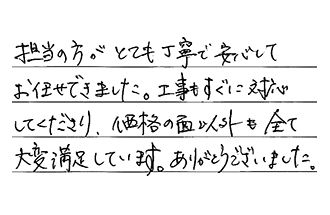 担当の方が とても丁寧で安心して
お任せできました。工事もすぐに対応
してくださり、価格の面以外も全て
大変満足しています。ありがとうございました。